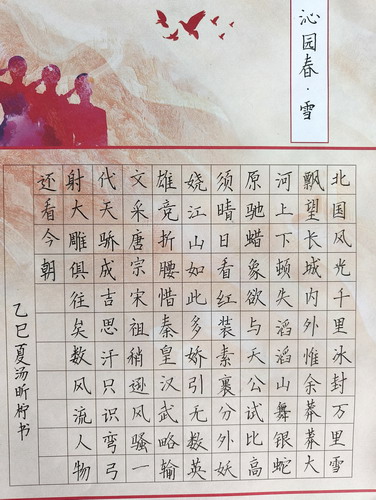 沁园春·雪
北国风光千里冰封万里雪
飘望长城内外惟余莽莽大
河上下顿失滔滔山舞银蛇
原驰蜡象欲与天公试比高
须晴日看红装素裹分外妖
娆江山如此多娇引无数英
雄竞折腰惜秦皇汉武略输
文采唐宗宋祖稍逊风骚一
代天骄成吉思汗只识弯弓
射大雕俱往矣数风流人物
还看今朝
乙巳夏汤昕柠书